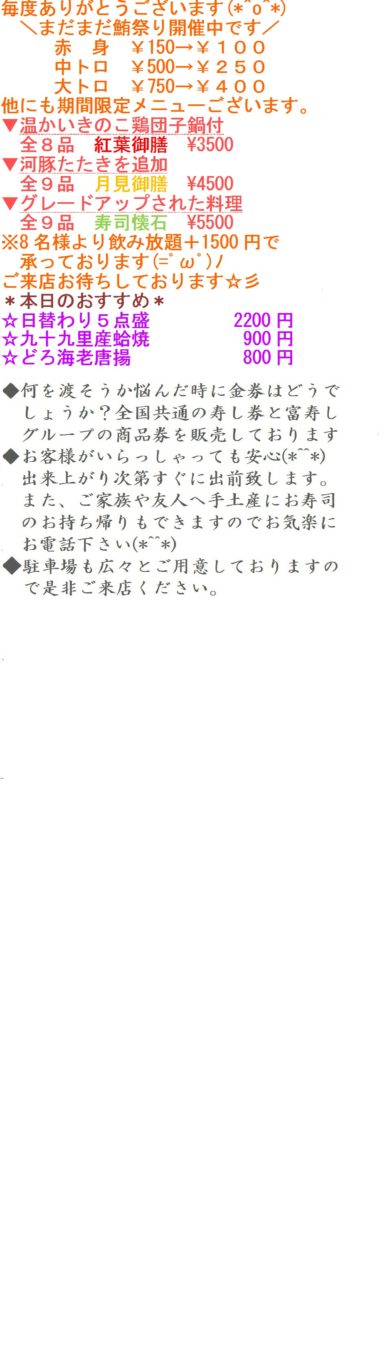 毎度ありがとうございます(*^o^*)
＼まだまだ鮪祭り開催中です／
赤　身　￥150→￥１００
中トロ　￥500→￥２５０
大トロ　￥750→￥４００
他にも期間限定メニューございます。
▼温かいきのこ鶏団子鍋付
全８品　紅葉御膳　¥3500
▼河豚たたきを追加
全９品　月見御膳　¥4500
▼グレードアップされた料理
全９品　寿司懐石　¥5500
※8 名様より飲み放題＋1500 円で
承っております(=ﾟωﾟ)ﾉ
ご来店お待ちしております☆彡
＊本日のおすすめ＊
☆日替わり５点盛　2200 円
☆九十九里産蛤焼　900 円
☆どろ海老唐揚　800 円
◆何を渡そうか悩んだ時に金券はどうで
しょうか？全国共通の寿し券と富寿し
グループの商品券を販売しております
◆お客様がいらっしゃっても安心(*^^*)
出来上がり次第すぐに出前致します。
また、ご家族や友人へ手土産にお寿司
のお持ち帰りもできますのでお気楽に
お電話下さい(*^^*)
◆駐車場も広々とご用意しておりますの
で是非ご来店ください。